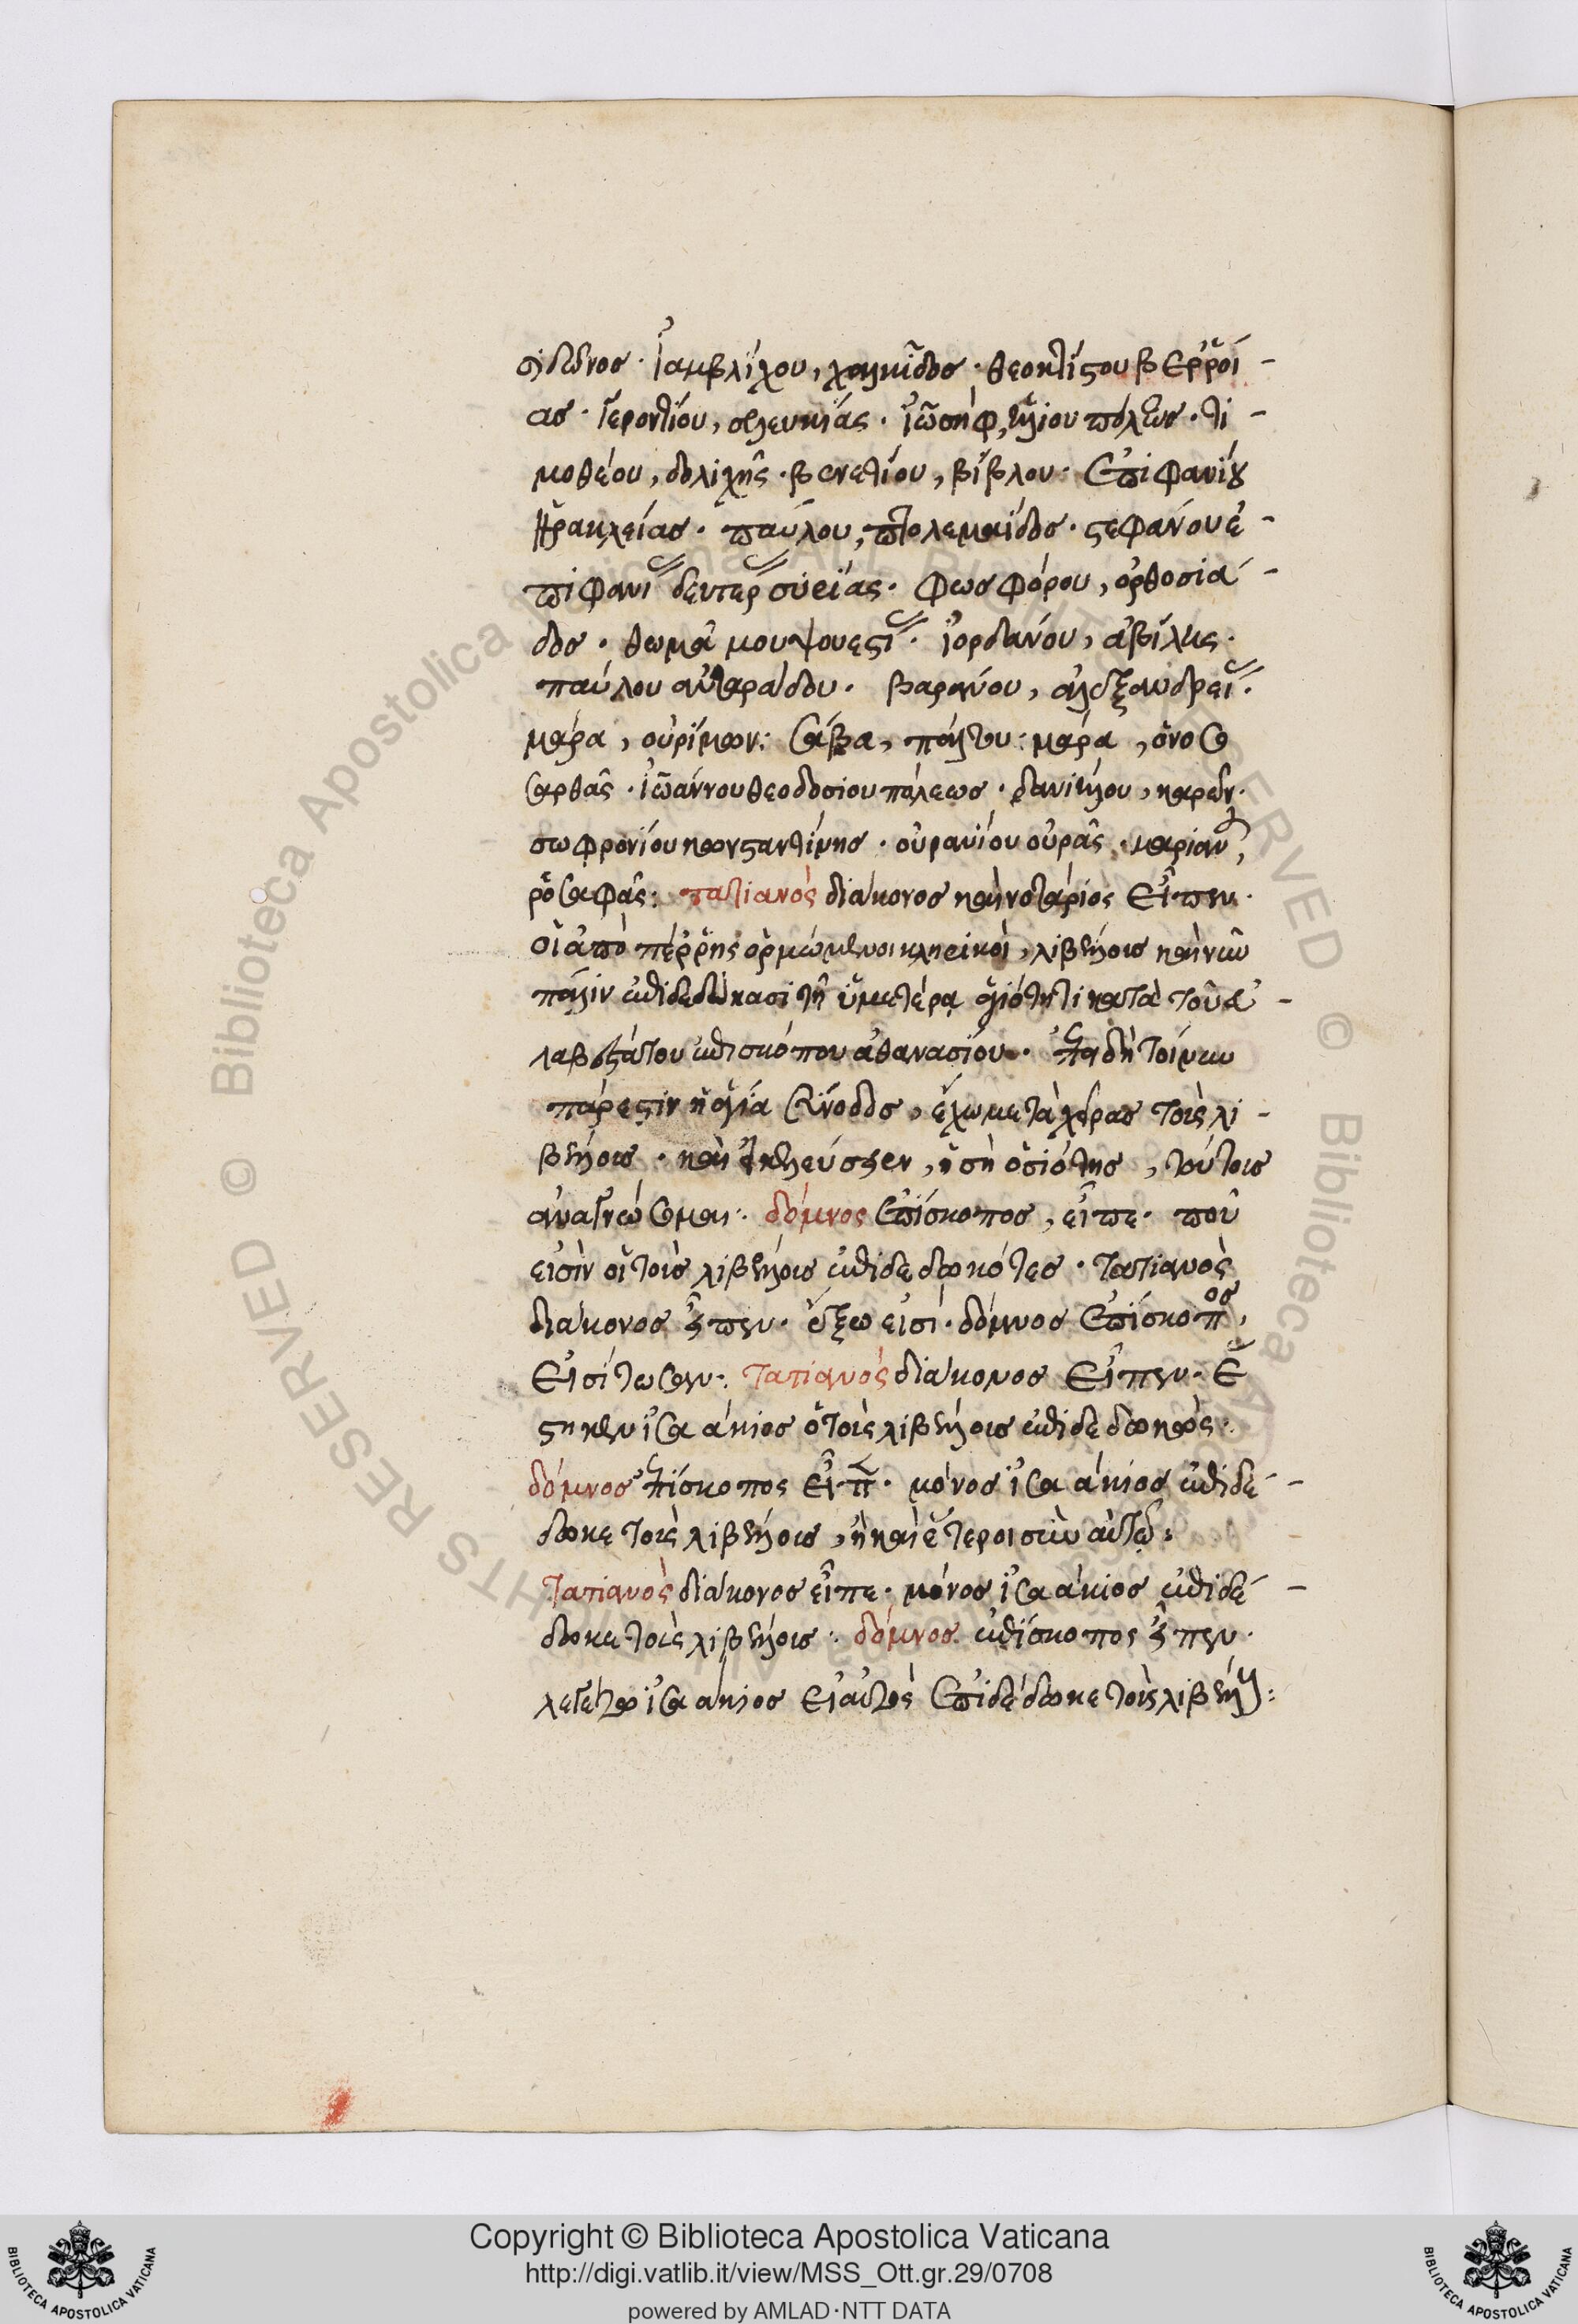 σιδῶνος · ἰαμβλίχου, χαλκίδος · θεοκτίστου βερροί-
ας · γεροντίου, σελευκίας · ἰωσὴφ, ἡλιουπόλεως · τι-
μοθέου, δολιχῆς · βενετίου, βίβλου · ἐπιφανίου
ἡρακλείας · παύλου, πτολεμαίδος · στεφάνου ἐ-
πιφανι δευτερ συρίας · φωσφόρου, ὀρθοσιά-
δος · θωμᾶ μουψουεστι · ἰορδάνου, ἀβίλης ·
παύλου ἀνταράδου · βαράνου, ἀλεξανδρει ·
μάρα, οὐρίμων : σάβα, πάλτου : μάρα, ὀνοσ
σαρθᾶς · ἰωάννου θεοδοσίου πόλεως · δανιήλου, καρῶν ·
σωφρονίου κωνσταντίνης · οὐρανίου οὐρᾶς · μαριαν,
ῥοσαφᾶς : τατιανὸς διάκονος καὶ νοτάριος εἶπεν ·
οἱ ἀπὸ πέρρης ὁρμώμενοι κληρικοὶ, λιβέλλους καὶ νῦν
πάλιν ἐπιδεδώκασι τῇ ὑμετέρᾳ ἁγιότητι κατὰ τοῦ εὐ-
λαβεστάτου ἐπισκόπου ἀθανασίου · ἐπειδὴ τοίνυν
πάρεστιν ἡ ἁγία σύνοδος, ἔχω μετὰ χεῖρας τοὺς λι-
βέλλους · καὶ εἰ κελεύσειεν, ἡ σὴ ὁσιότης, τούτους
ἀναγνώσομαι : δόμνος ἐπίσκοπος, εἶπε · ποῦ
εἰσὶν οἱ τοὺς λιβέλλους ἐπιδεδωκότες · τατιανὸς
διάκονος εἶπεν · ἔξω εἰσί · δόμνος ἐπίσκοπος,
εἰσίτωσαν : τατιανὸς διάκονος εἶπεν · ἕ
στηκεν ἰσαάκιος ὁ τοὺς λιβέλλους ἐπιδεδωκώς :
δόμνος ἐπίσκοπος εἶπ · μόνος ἰσαάκιος ἐπιδέ-
δωκε τοὺς λιβέλλους, ἢ καὶ ἕτεροι σὺν αὐτῷ :
τατιανὸς διάκονος εἶπε · μόνος ἰσαάκιος ἐπιδέ-
δωκε τοὺς λιβέλλους : δόμνος ἐπίσκοπος εἶπεν ·
λεγέτω ἰσαάκιος εἰ αὐτὸς ἐπιδέδωκε τοὺς λιβέλλους :
Copyright © Biblioteca Apostolica Vaticana
http://digi.vatlib.it/view/MSS_Ott.gr.29/0708
powered by AMLAD·NTT DATA